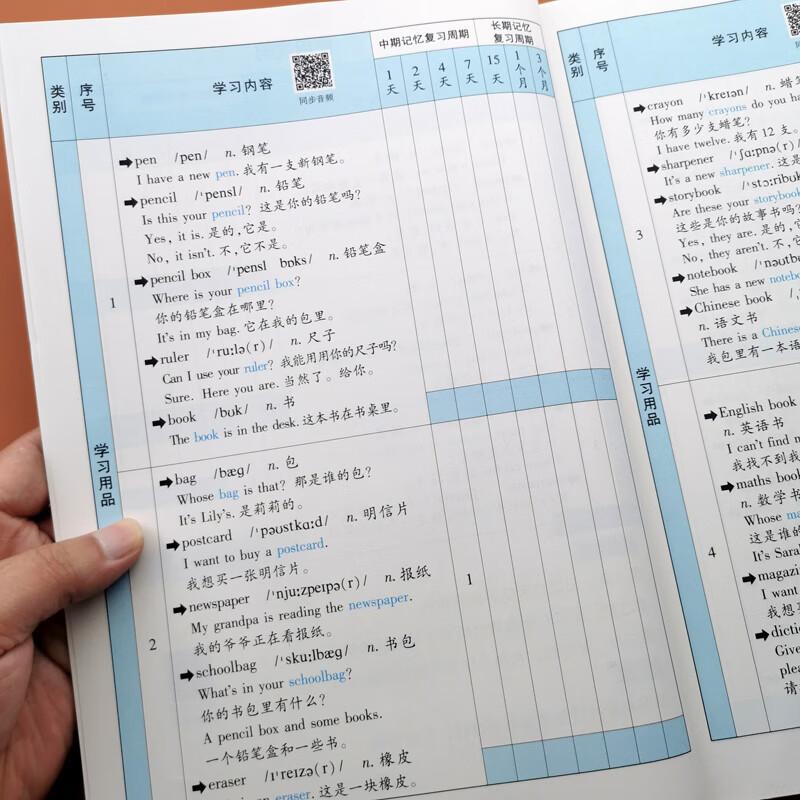 类别
序号
学习内容
同步音频
中期记忆复习周期
长期记忆复习周期
1天
2天
4天
7天
15天
1个月
3个月
学习用品
1
➡pen /pen/ n. 钢笔
I have a new pen. 我有一支新钢笔。
➡pencil /ˈpensl/ n. 铅笔
Is this your pencil? 这是你的铅笔吗?
Yes, it is. 是的,它是。
No, it isn't. 不,它不是。
➡pencil box /ˈpensl bɒks/ n. 铅笔盒
Where is your pencil box?
你的铅笔盒在哪里?
It's in my bag. 它在我的包里。
➡ruler /ˈruːlə(r)/ n. 尺子
Can I use your ruler? 我能用用你的尺子吗?
Sure. Here you are. 当然了。给你。
➡book /bʊk/ n. 书
The book is in the desk. 这本书在书桌里。
2
➡bag /bæɡ/ n. 包
Whose bag is that? 那是谁的包?
It's Lily's. 是莉莉的。
➡postcard /ˈpəʊstkɑːd/ n. 明信片
I want to buy a postcard.
我想买一张明信片。
➡newspaper /ˈnjuːzpeɪpə(r)/ n. 报纸
My grandpa is reading the newspaper.
我的爷爷正在看报纸。
➡schoolbag /ˈskuːlbæɡ/ n. 书包
What's in your schoolbag?
你的书包里有什么?
A pencil box and some books.
一个铅笔盒和一些书。
➡eraser /ɪˈreɪzə(r)/ n. 橡皮
an eraser. 这是一块橡皮。
1
类别
序号
学习内容
学习用品
3
➡crayon /ˈkreɪən/ n. 蜡笔
How many crayons do you ha
你有多少支蜡笔?
I have twelve. 我有 12 支。
➡sharpener /ˈʃɑːpnə(r)/
It's a new sharpener. 这是
➡storybook /ˈstɔːribʊk
Are these your storybook
这些是你的故事书吗?
Yes, they are. 是的,它
No, they aren't. 不,它
➡notebook /ˈnəʊtb
She has a new noteb
➡Chinese book /ˌ
n. 语文书
There is a Chines
我包里有一本语
4
➡English book
n. 英语书
I can't find m
我找不到我
➡maths book
n. 数学书
Whose ma
这是谁的
It's Sara
➡magazi
I want
我想
➡dictio
Give
plea
请